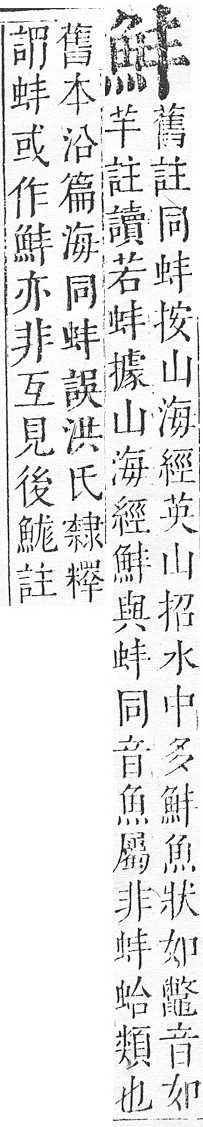 䰷
舊註同蚌按山海經英山招水中多䰷魚狀如鼈音如
羊註讀若蚌據山海經䰷與蚌同音魚屬非蚌蛤類也
舊本沿篇海同蚌誤洪氏隸釋
謂蚌或作䰷亦非互見後註